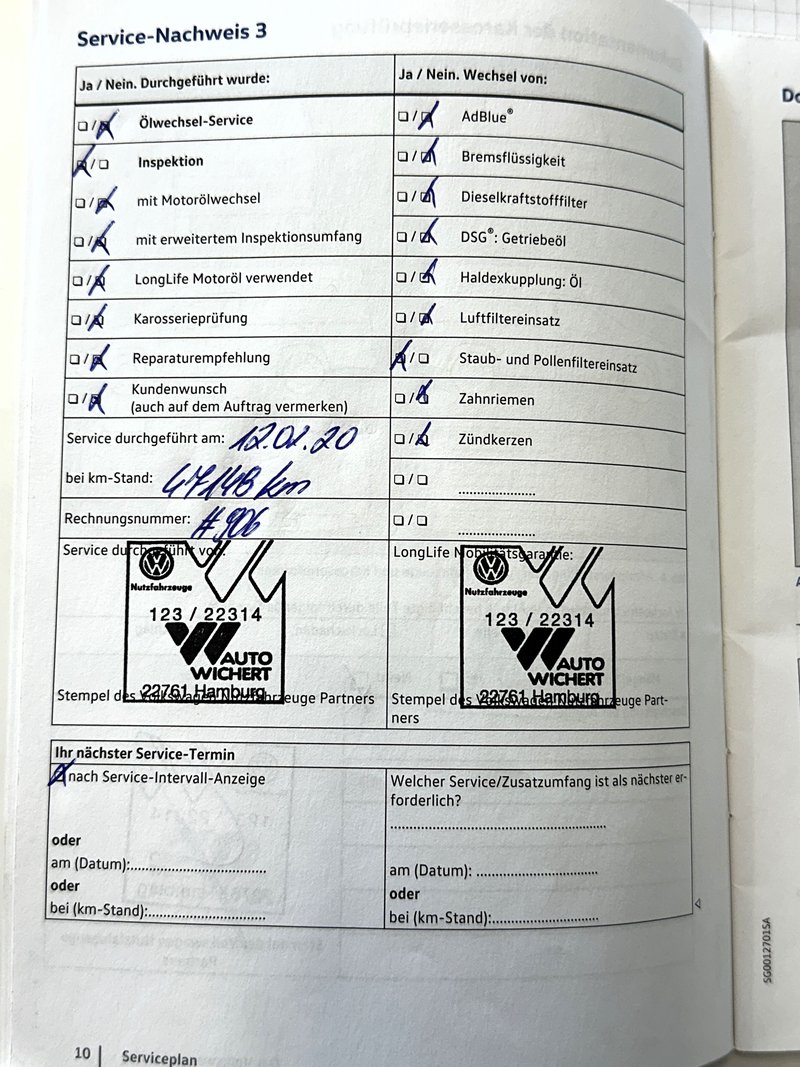 Service-Nachweis 3
Ja / Nein. Durchgeführt wurde:
Ölwechsel-Service
Inspektion
mit Motorölwechsel
mit erweitertem Inspektionsumfang
LongLife Motoröl verwendet
Karosserieprüfung
Reparaturempfehlung
Kundenwunsch
(auch auf dem Auftrag vermerken)
Service durchgeführt am: 12.02.20
bei km-Stand: 47148 km
Rechnungsnummer: #906
Ja / Nein. Wechsel von:
AdBlue®
Bremsflüssigkeit
Dieselkraftstofffilter
DSG®: Getriebeöl
Haldexkupplung: Öl
Luftfiltereinsatz
Staub- und Pollenfiltereinsatz
Zahnriemen
Zündkerzen
Service durchgeführt von:
Nutzfahrzeuge
123 / 22314
AUTO
WICHERT
22761 Hamburg
Stempel des Volkswagen Nutzfahrzeuge Partners
LongLife Mobilitätsgarantie:
Nutzfahrzeuge
123 / 22314
AUTO
WICHERT
22761 Hamburg
Stempel des Volkswagen Nutzfahrzeuge Part-
ners
Ihr nächster Service-Termin
nach Service-Intervall-Anzeige
oder
am (Datum):
oder
bei (km-Stand):
Welcher Service/Zusatzumfang ist als nächster er-
forderlich?
am (Datum):
oder
bei (km-Stand):
10 | Serviceplan
Do
SG00127015A